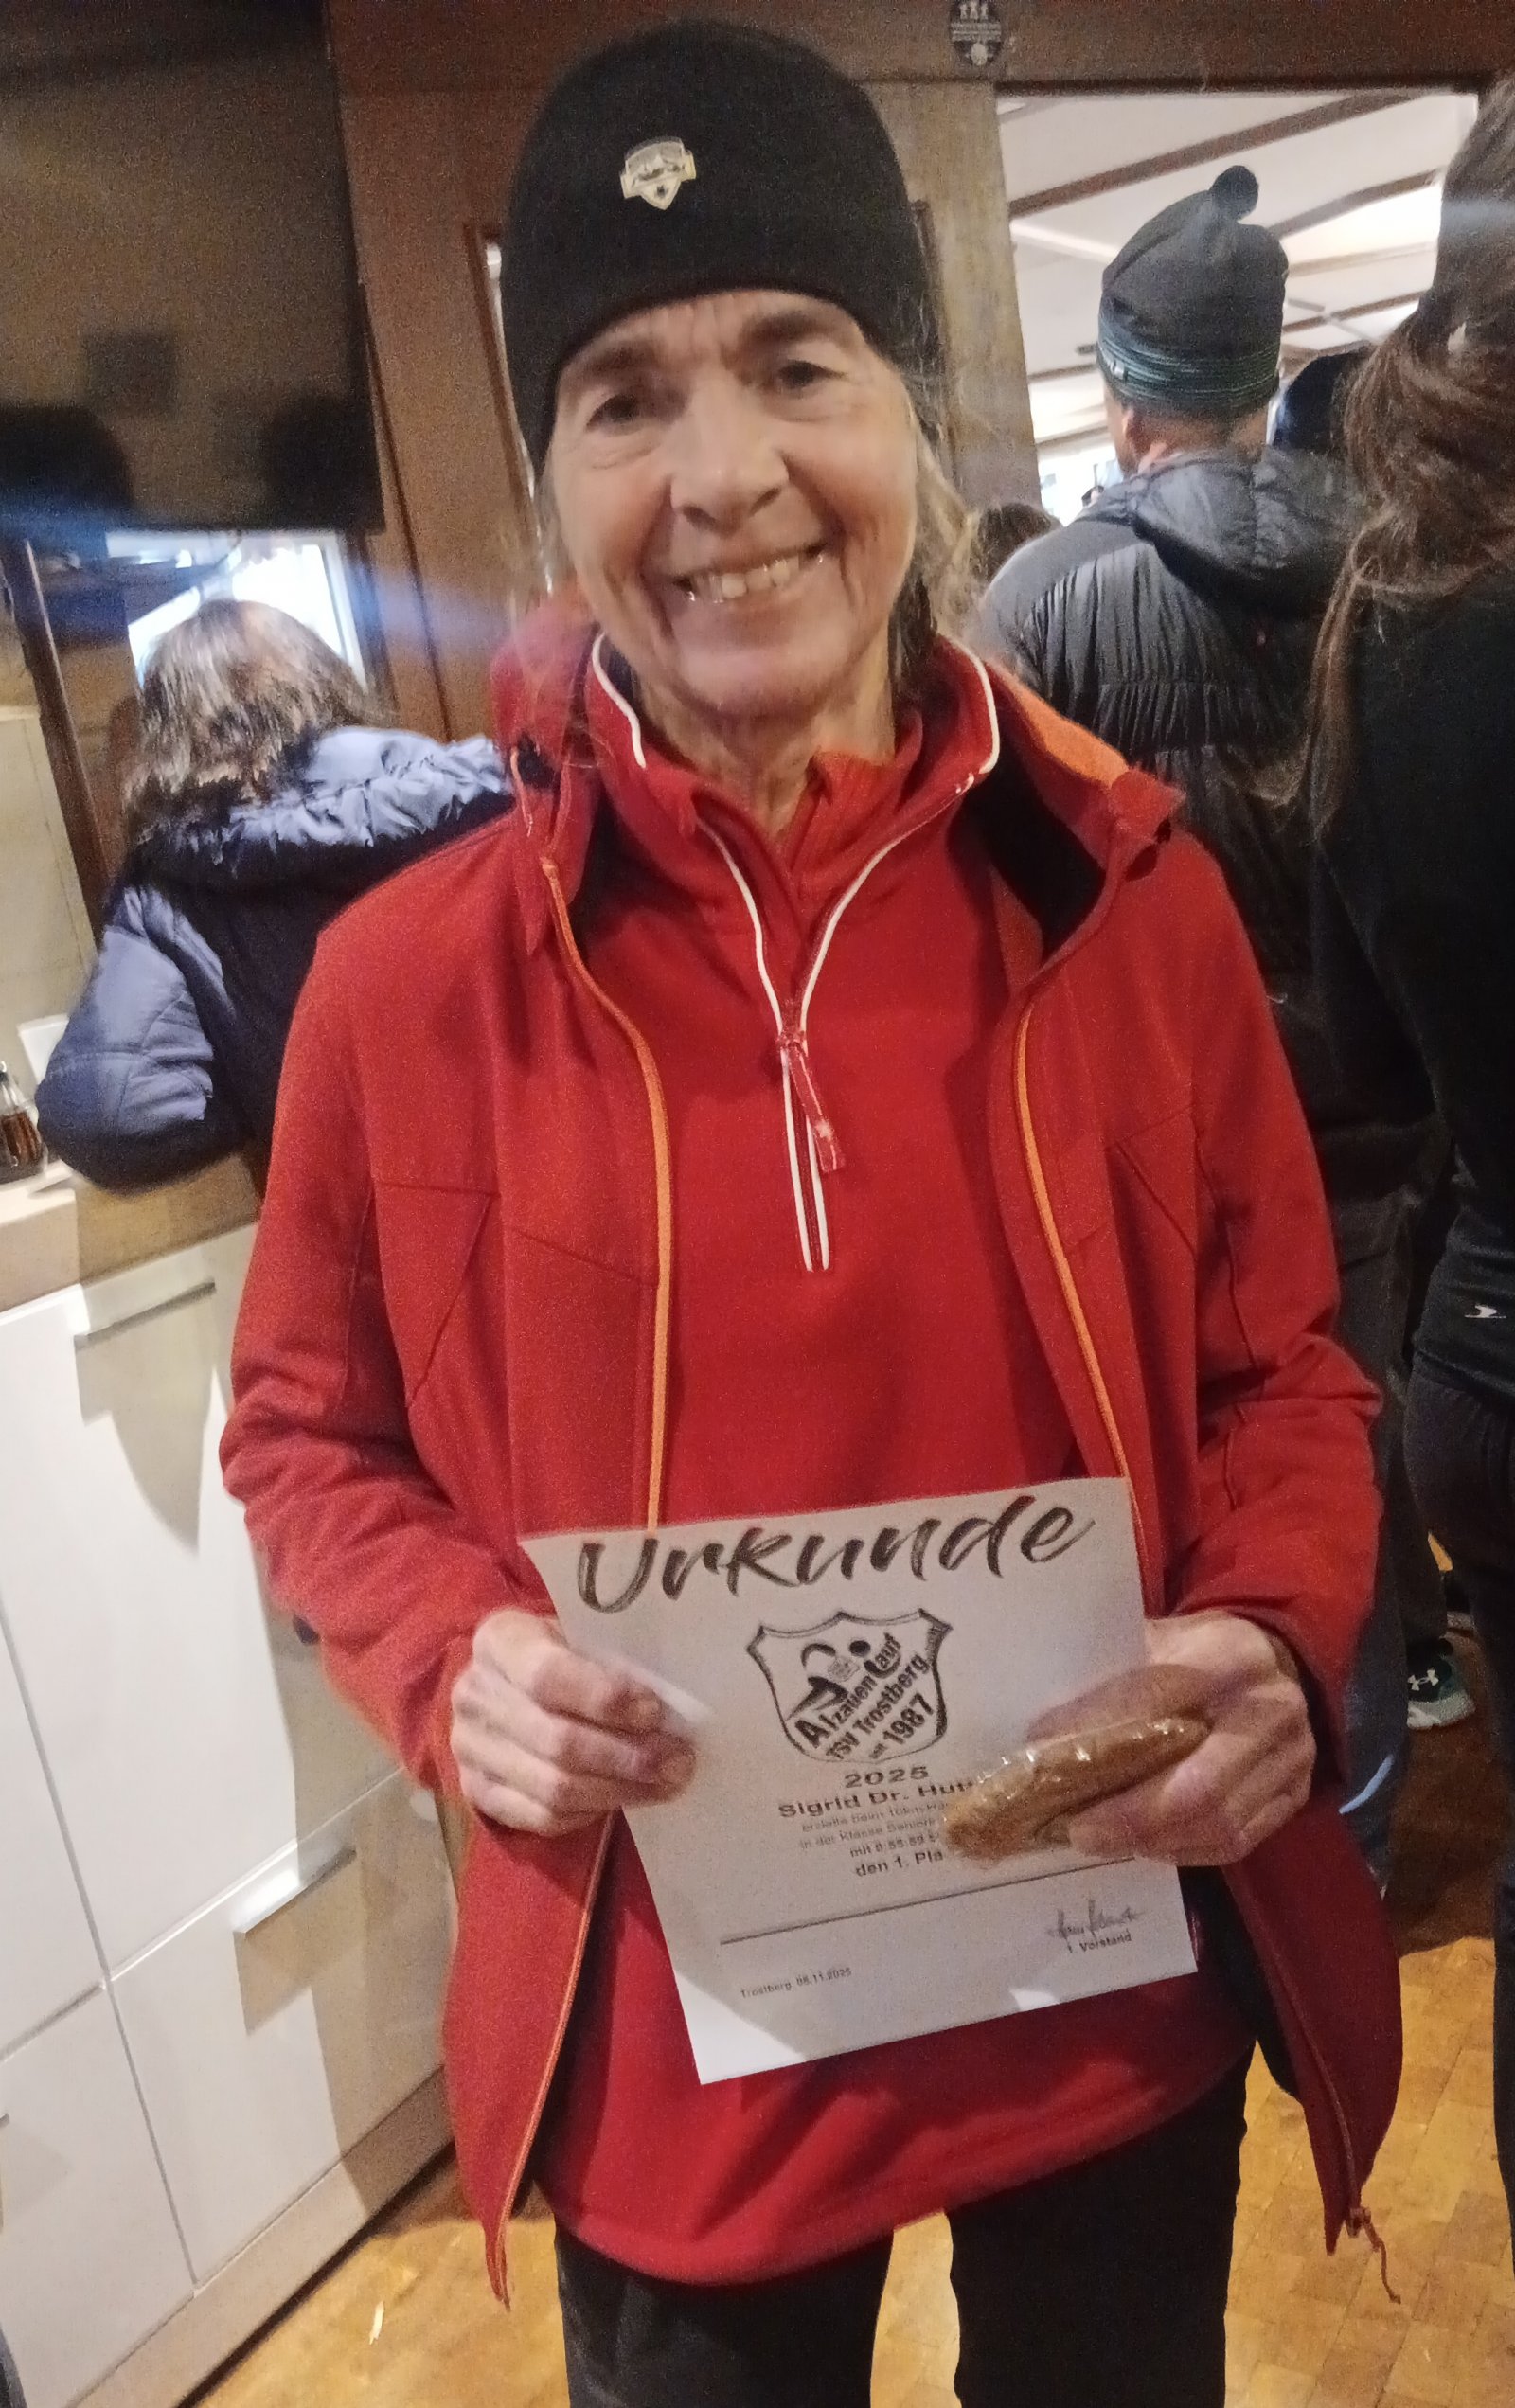 Urkunde
Alzauenlauf
TSV Trostberg
seit 1987
2025
Sigrid Dr.
erzielte beim
in der Klasse
mit 0:55:59
den 1.
1. Vorstand
Trostberg,